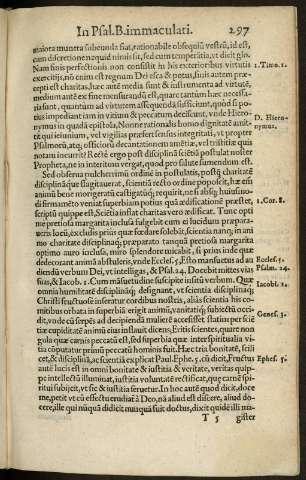 In Psal. B. immaculati. 297
maiora munera subeunda fiat, rationabile obsequiũ vestrũ, id est,
cum discretione nequid nimis sit, sed cum temperãtia, vt dicit glo.
Nam finis perfectionis non consistit in his exterioribus virtutis
exercitijs, nõ enim est regnum Dei esca & potus, finis autem præ-
1. Timo. 1.
cepti est charitas, hæc autẽ media sunt & instrumenta ad virtutẽ,
medium autẽ ex fine mensurandũ est, quare tantùm hæc necessa-
ria sunt, quantum ad virtutem assequendã sufficiunt, quòd si po-
tius impediant iam in vitium & peccatum desciscunt, vnde Hiero-
D. Hiero-
nymus in quadã epistola, Nonne rationalis homo dignitatẽ amit-
nymus.
tit qui ieiunium, vel vigilias præfert sensus integritati, vt propter
Psalmorũ, atq; officiorũ decantationem amẽtiæ, vel tristitiæ quis
notam incurrat? Rectè ergo post disciplinã sciẽtiã postulat noster
Propheta, ne in interitum vergat, quod pro salute sumendum est.
Sed obserua pulcherrimũ ordinẽ in postulatis, postq̃ charitatẽ
disciplinãque flagitauerat, sciẽtiam recto ordine proposuit, hæc
animũ bene morigeratũ castigatũq; requirit, ne si absq; huiusmo-
di firmamẽto veniat superbiam potius quã ædificationẽ præstet,
1. Cor. 8.
scriptũ quippe est, Sciẽtia inflat charitas vero ædificat. Tunc opti-
me pretiosa margarita inclusa fulget cum ei lucidum præpara-
optimo auro inclusa, miro splendore micabit, si prius inde quæ
dedecorant animã abstuleris, vnde Eccles. 5. Esto mansuetus ad au-
Eccles. 5.
diendũ verbum Dei, vt intelligas, & Psal. 24. Docebit mites vias
Psalm. 24.
suas, & Iacob. 1. Cum mãsuetudine suscipite insitũ verbum.
Iacobi. 1.
omnia humilitatẽ disciplinãq; designant, vt scientia disciplinatũ
Christi fructuosè inseratur cordibus nostris, alias scientia his co-
mitibus orbata in superbiã erigit animũ, vanitatiq; subiectũ occi-
dit, vnde cũ serpẽs ad decipiendã mulierẽ accesisset statim per sciẽ-
Genes. 3.
tiæ cupiditatẽ animũ eius inflauit dicens, Eritis scientes, quare non
gula quæ carnis peccatũ est, sed superbia quæ inter spiritualia vi-
tia cõputatur primũ peccatũ hominis fuit. Hæc tria bonitatẽ, scili-
cet, & disciplinã, ac scientiã explicat Paul. Ephe. 5. cũ dicit, Fructus
Ephes. 5.
autẽ lucis est in omni bonitate & iustitia & veritate, veritas quip-
pe intellectũ illuminat, iustitia voluntatẽ rectificat, que carnẽ spi-
ritui subijcit, vt sic & iustitia seruetur. In hoc autẽ quod dicit, doce
me, petit vt cũ effectu erudiat à Deo, nã aliud est discere, aliud do-
cere, ille qui nũquã didicit nunquã fuit doctus, dixit quidẽ illi ma-
T 5 gister